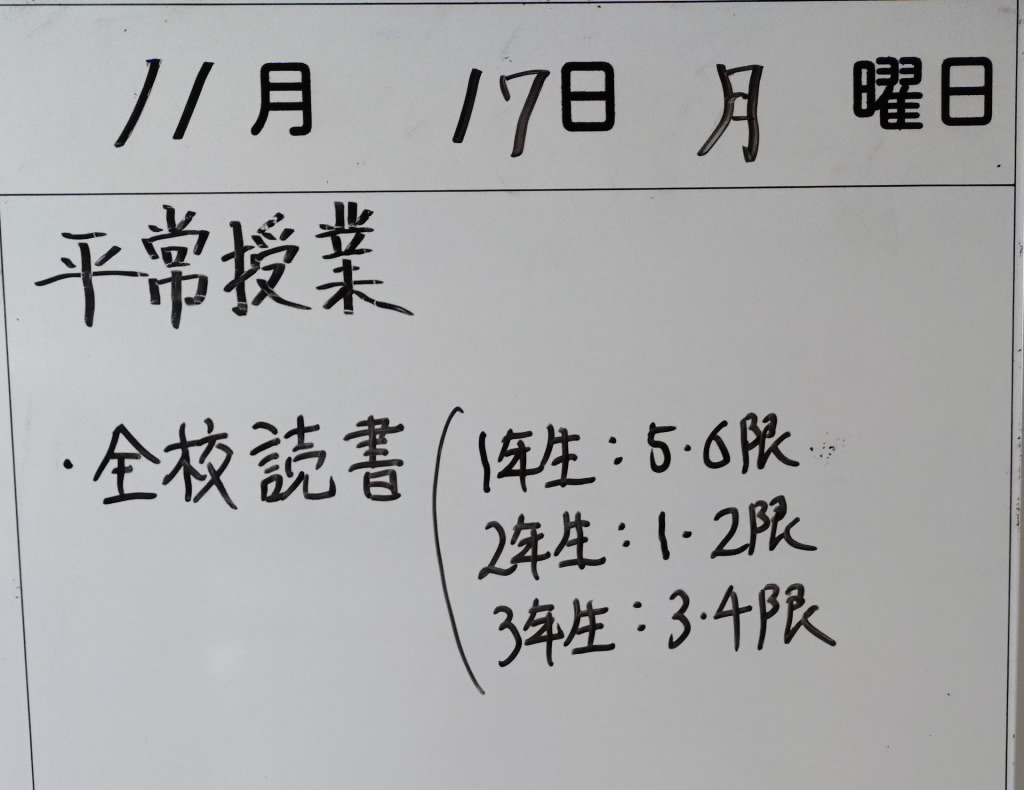 11月 17日 月曜日
平常授業
・全校読書(1年生:5・6限
2年生:1・2限
3年生:3・4限